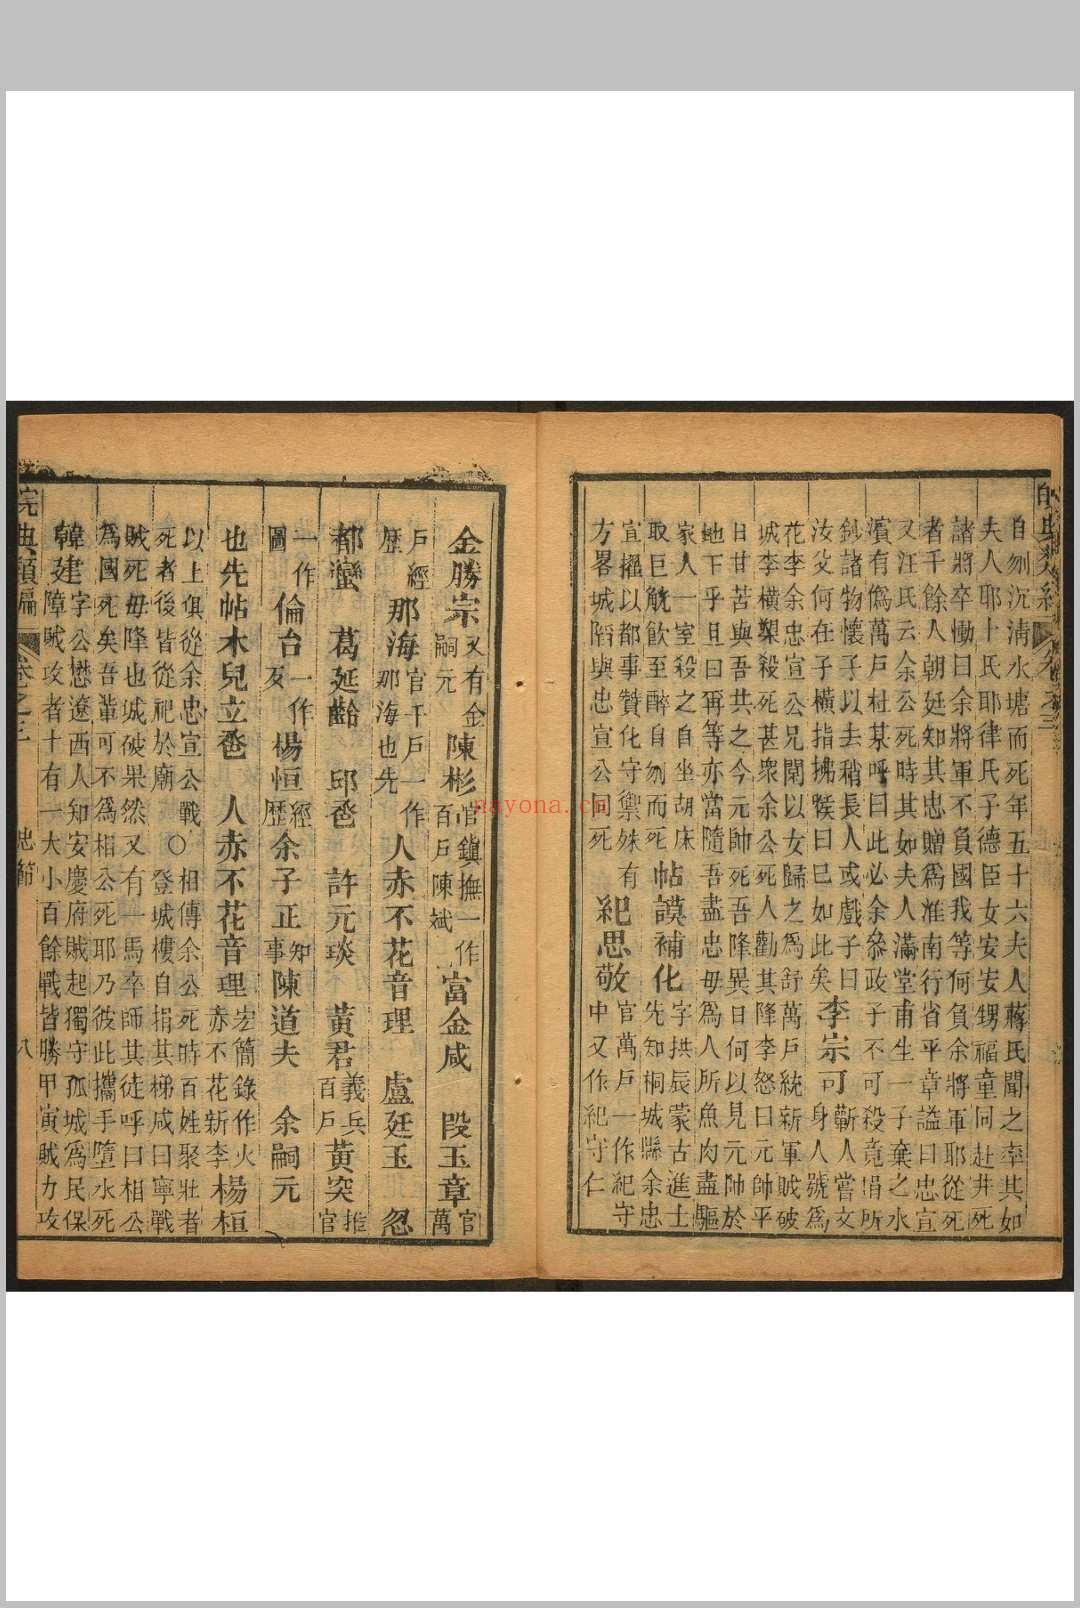 自刎沉清水塘而死年五十六夫人蔣氏聞之率其如
夫人耶卜氏耶律氏子德臣女安安甥福童同赴井死
諸將卒慟曰余將軍不負國我等何負余將軍耶從死
者千餘人朝廷知其忠贈爲淮南行省平章謚曰忠宣
又汪氏云余公死時其如夫人滿堂甫生一子棄之水
濱有僞萬戶杜某呼曰此必余叅政子不可殺竟捐所
鈔諸物懷子以去稍長人或戲子曰
李宗可
蘄人嘗文
汝父何在子橫指拂喉曰已如此矣
身人號爲
花李余忠宣公兄閣以女歸之爲舒萬戶統新軍賊破
城李橫槊殺死甚衆余公死人勸其降李怒曰元帥平
日甘苦與吾共之今元帥死吾降異日何以見元帥於
地下乎且曰再等亦當隨吾盡忠毋爲人所魚肉盡驅
家人一室殺之自坐胡床
帖謨補化
字拱辰蒙古進士
取巨觥飲至醉自刎而死
先知桐城縣余忠
宣擢以都事贊化守禦殊有
紀思敬
官萬戶一作紀守
方畧城陷與忠宣公同死
中又作紀守仁
金勝宗
又有金
嗣元
陳彬
官鎮撫一作
百戶陳斌
富金咸
段玉章
官
萬
戶經
歷
那海
官千戶一作
那海也先
人赤不花音理
盧廷玉
忽
都蠻
葛延齡
邱卺
許元琰
黃君
義兵
百戶
黃突
推
官
一作
圖
倫台
一作
友
楊恒
經
歷
余子正
知
事
陳道夫
余嗣元
也先帖木兒立卺
人赤不花音理
宏簡錄作火
赤不花新李
楊桓
以上俱從余忠宣公戰〇相傳余公死時百姓聚壯者
死者後皆從祀於廟
登城樓自捐其梯咸曰寧戰
賊死毋降也城破果然又有一馬卒師其徒呼曰相公
爲國死矣吾輩可不爲相公死耶乃彼此攜手墮水死
韓建
字公懋遼西人知安慶府賊起獨守孤城爲民保
障賊攻者十有一大小百餘戰皆勝甲寅賊力攻
皖典類編
卷之三
忠節
八